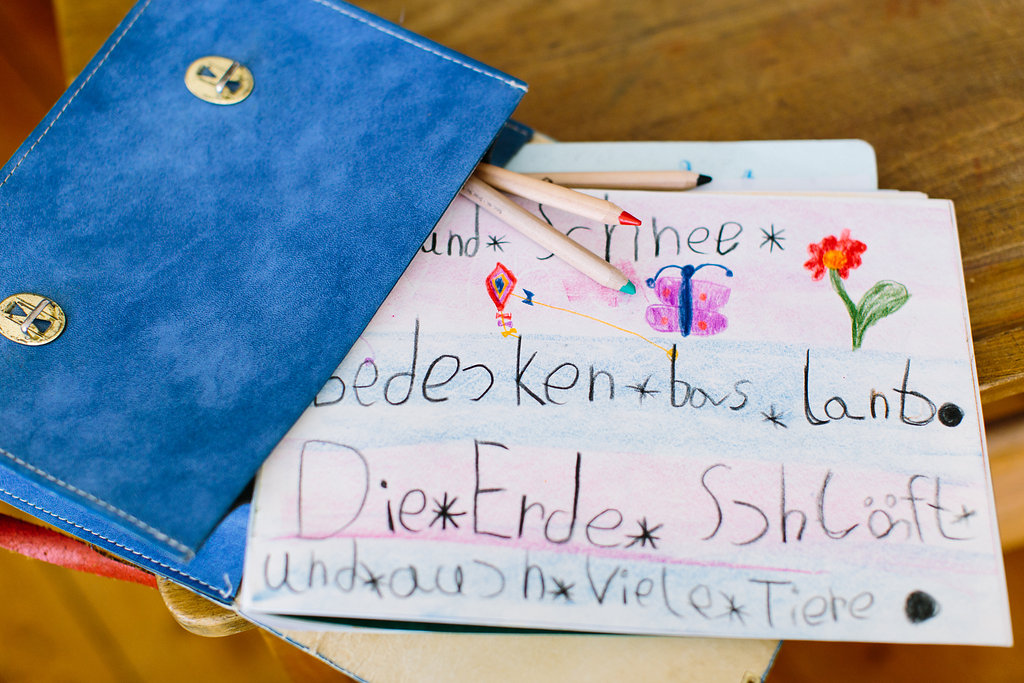 und* Schnee *
bedecken * bas * lanb.
Die*Erde* Schläft*
und*auch*viele*Tiere.